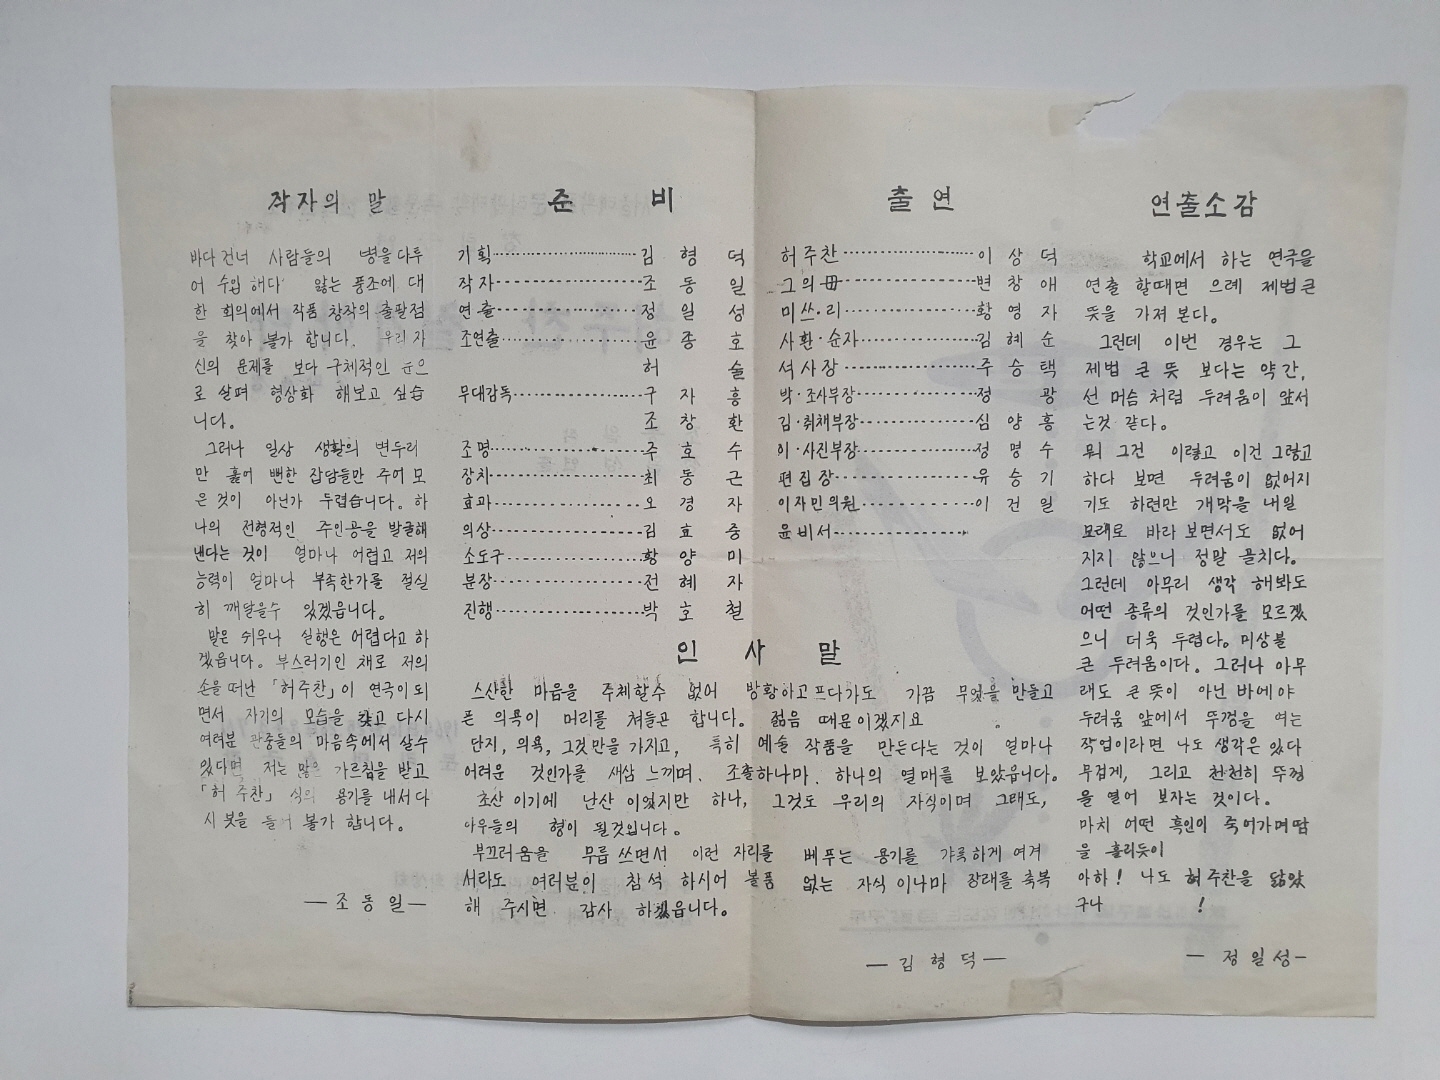 작자의 말
바다건너 사람들의 병을 다루
어 수입 해다 앓는 풍조에 대
한 회의에서 작품 창작의 출팔점
을 찾아 볼가 합니다. 우리 자
신의 문제를 보다 구체적인 눈으
로 살펴 형상화 해보고 싶습
니다.
그러나 일상 생활의 변두리
만 훑어 뻔한 잡담들만 주어 모
은 것이 아닌가 두렵습니다. 하
나의 전형적인 주인공을 발굴해
낸다는 것이 얼마나 어렵고 저의
능력이 얼마나 부족한가를 절실
히 깨달을수 있겠읍니다.
말은 쉬우나 실행은 어렵다고 하
겠읍니다. 부스러기인 채로 저의
손을 떠난 「허주찬」이 연극이 되
면서 자기의 모습을 갖고 다시
여러분 관중들의 마음속에서 살수
있다면 저는 많은 가르침을 받고
「허주찬」 식의 용기를 내서 다
시 붓을 들어 볼가 합니다.
— 조동일 —
준 비
기획 김형덕
작자 조동일
연출 정일성
조연출 윤종호
허술
무대감독 구자흥
조창환
조명 주호수
장치 최동근
효과 오경자
의상 김효중
소도구 황양미
분장 전혜자
진행 박호철
출연
허주찬 이상덕
그의 母 변창애
미쓰·리 황영자
사환·순자 김혜순
석사장 주승택
박·조사부장 정광
김·취채부장 심양홍
이·사진부장 정명수
편집장 유승기
이자민의원 이건일
윤비서
인 사 말
스산한 마음을 주체할수 없어 방황하고프다가도 가끔 무엇을 만들고
픈 의욕이 머리를 쳐들곤 합니다. 젊음 때문이겠지요.
단지, 의욕, 그것만을 가지고, 특히 예술 작품을 만든다는 것이 얼마나
어려운 것인가를 새삼 느끼며. 조촐하나마. 하나의 열매를 보았읍니다.
초산이기에 난산 이었지만 하나, 그것도 우리의 자식이며 그래도,
아우들의 형이 될것입니다.
부끄러움을 무릅쓰면서 이런 자리를 베푸는 용기를 갸륵하게 여겨
서라도 여러분이 참석 하시어 볼품 없는 자식이나마 장래를 축복
해 주시면 감사 하겠읍니다.
— 김형덕 —
연출소감
학교에서 하는 연극을
연출 할때면 으례 제법큰
뜻을 가져 본다.
그런데 이번 경우는 그
제법 큰 뜻 보다는 약간,
선 머슴 처럼 두려움이 앞서
는것 같다.
뭐 그건 이렇고 이건 그렇고
하다 보면 두려움이 없어지
기도 하련만 개막을 내일
모래로 바라보면서도 없어
지지 않으니 정말 끌치다.
그런데 아무리 생각 해봐도
어떤 종류의 것인가를 모르겠
으니 더욱 두렵다. 미상불
큰 두려움이다. 그러나 아무
래도 큰 뜻이 아닌 바에야
두려움 앞에서 뚜껑을 여는
작업이라면 나도 생각은 있다
무겁게, 그리고 천천히 뚜껑
을 열어 보자는 것이다.
마치 어떤 흑인이 죽어가며땀
을 흘리듯이
아하! 나도 허주찬을 닮았
구나 !
— 정일성 —